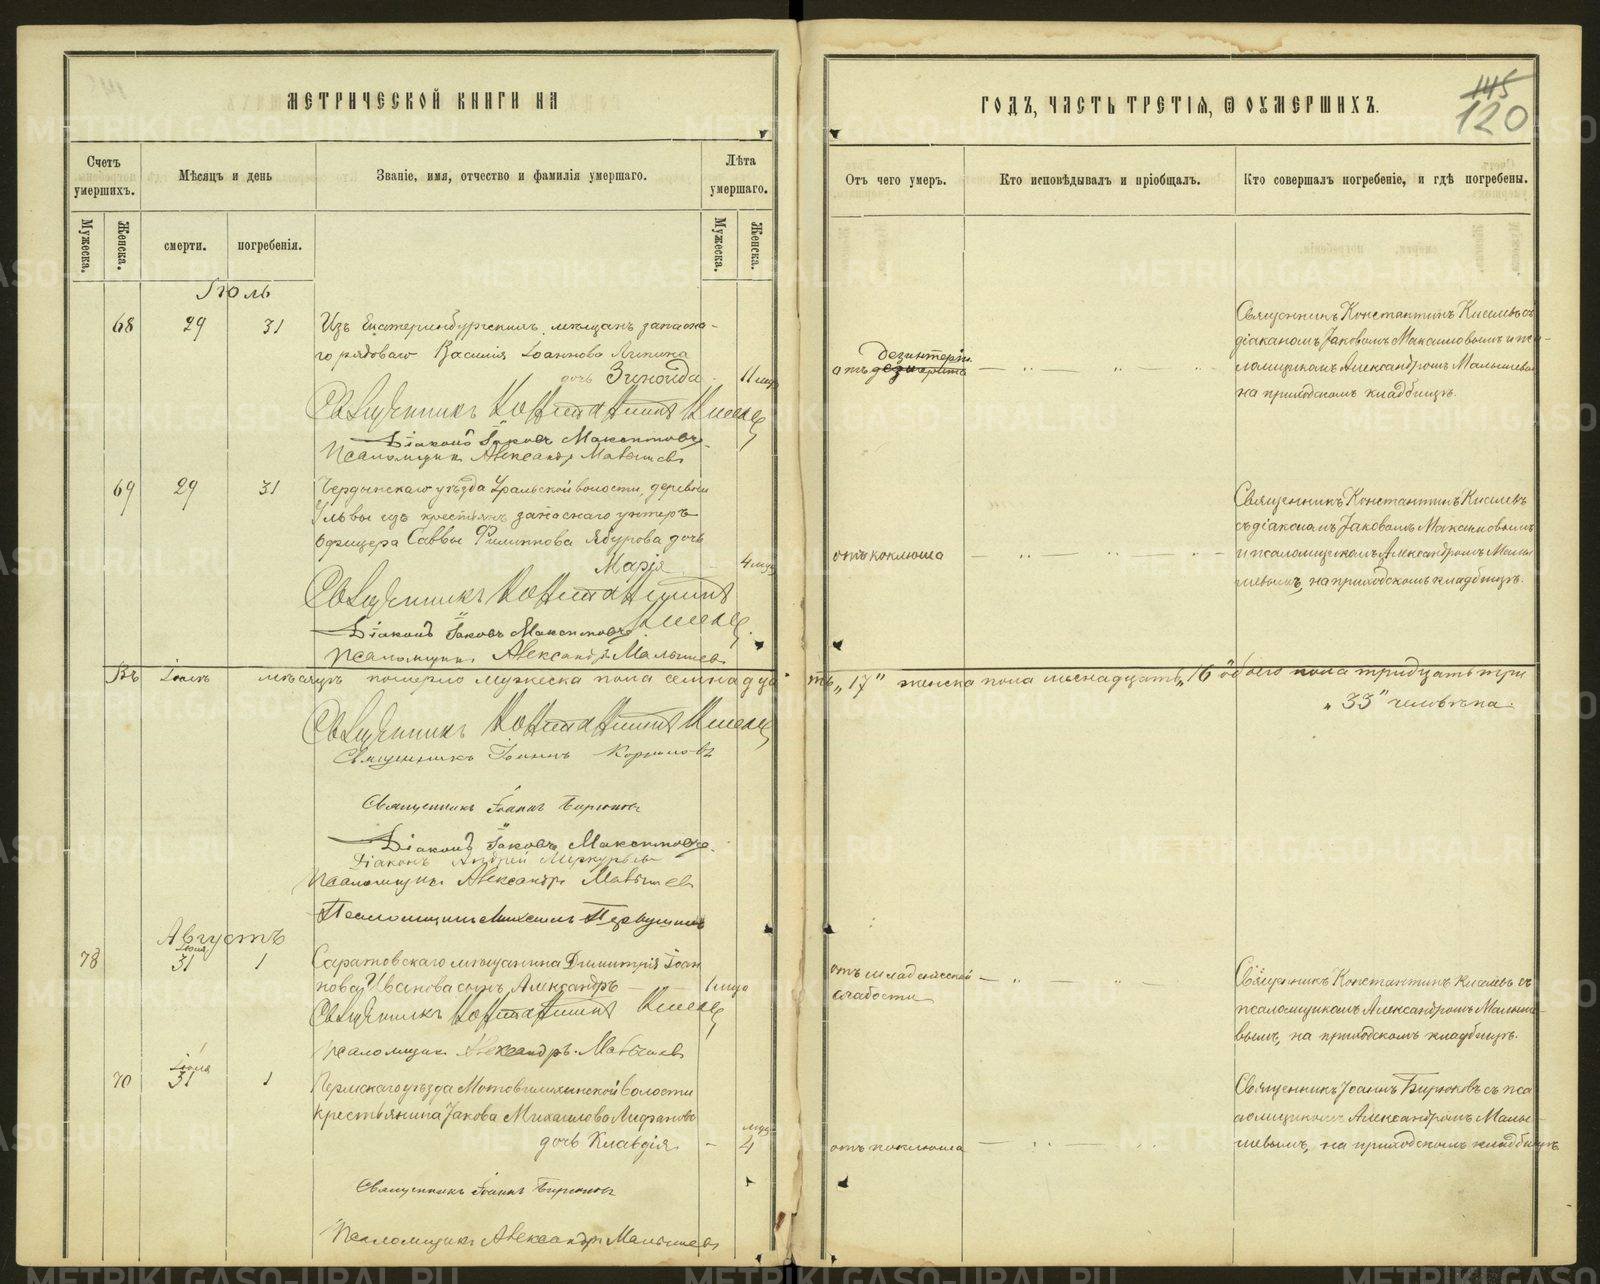 МЕТРИЧЕСКОЙ КНИГИ НА
Счетъ умершихъ.
Мѣсяцъ и день
Званіе, имя, отчество и фамилія умершаго.
Лѣта умершаго.
Мужеска.
Женска.
смерти.
погребенія.
Мужеска.
Женска.
Іюль
68 29 31 Изъ Екатеринбургскихъ мѣщанъ запасна-
го рядоваго Василія Іоаннова
дочь Зинаида 11 мѣс
Священникъ Константинъ Киселевъ
Діаконъ Іаковъ Максимовъ
Псаломщикъ Александръ Малышевъ
69 29 31 Чердынскаго уѣзда Уральской волости, деревни
изъ крестьянъ запаснаго унтеръ
офицера Саввы Филиппова дочь
Марія 4 мѣс
Священникъ Константинъ
Киселевъ
Діаконъ Іаковъ Максимовъ
Псаломщикъ Александръ Малышевъ
Въ Іюлѣ мѣсяцѣ померло мужеска пола семнадца
Священникъ Константинъ Киселевъ
Священникъ Іоаннъ
Священникъ Іоаннъ Бирюковъ
Діаконъ Іаковъ Максимовъ
Діаконъ Андрей Меркурьевъ
Псаломщикъ Александръ Малышевъ
Псаломщикъ Михаилъ Первушинъ
Августъ
Іюля
78 31 1 Саратовскаго мѣщанина Димитрія Іоан
нова Иванова сынъ Александръ 1 мѣс
Священникъ Константинъ Киселевъ
Псаломщикъ Александръ Малышевъ
Іюля
70 31 1 Пермскаго уѣзда Мотовилихинской волости
крестьянина Іакова Михаилова
дочь Клавдія 4 мѣс
Священникъ Іоаннъ Бирюковъ
Псаломщикъ Александръ Малышевъ
ГОДЪ, ЧАСТЬ ТРЕТІЯ, Ѿ ОУМЕРШИХЪ.
145
120
Отъ чего умеръ.
Кто исповѣдывалъ и пріобщалъ.
Кто совершалъ погребеніе, и гдѣ погребены.
Священникъ Константинъ Киселевъ съ
діакономъ Іаковомъ Максимовымъ и пса-
ломщикомъ Александромъ Малышевымъ
на приходскомъ кладбищѣ.
дезинтеріи
отъ
Священникъ Константинъ Киселевъ
съ діакономъ Іаковомъ Максимовымъ
и псаломщикомъ Александромъ Малы
шевымъ, на приходскомъ кладбищѣ.
отъ коклюша
ть „17" женска пола шестнадцать „16" обоего пола тридцать три
„33" человѣка.
отъ младенческой
слабости
Священникъ Константинъ Киселевъ съ
псаломщикомъ Александромъ Малыше-
вымъ, на приходскомъ кладбищѣ.
Священникъ Іоаннъ Бирюковъ съ пса
ломщикомъ Александромъ Малы-
шевымъ, на приходскомъ кладбищѣ
отъ коклюша
METRIKI.GASO-URAL.RU